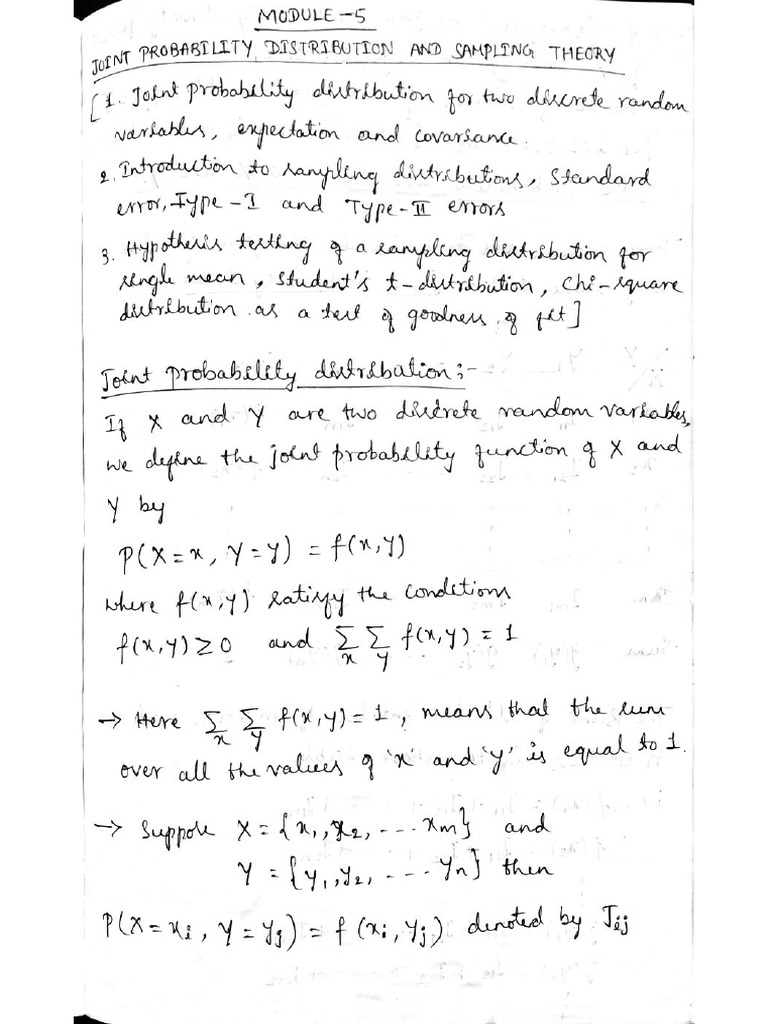 MODULE-5
JOINT PROBABILITY DISTRIBUTION AND SAMPLING THEORY
[1. Joint probability distribution for two discrete random
variables, expectation and covariance.
2. Introduction to sampling distributions, standard
error, Type-I and Type-II errors
3. Hypothesis testing of a sampling distribution for
single mean, student's t-distribution, chi-square
distribution as a test of goodness of fit]
Joint probability distribution:-
If X and Y are two discrete random variables,
we define the joint probability function of X and
Y by
P(X=x, Y=y) = f(x,y)
where f(x,y) satisfy the conditions
f(x,y)≥0 and Σx Σy f(x,y) = 1
→ Here Σx Σy f(x,y)=1, means that the sum
over all the values of 'x' and 'y' is equal to 1.
→ Suppose X = {x1, x2, ... xm} and
Y = {y1, y2, .... yn} then
P(X=xi, Y=yj) = f(xi, yj) denoted by Jij